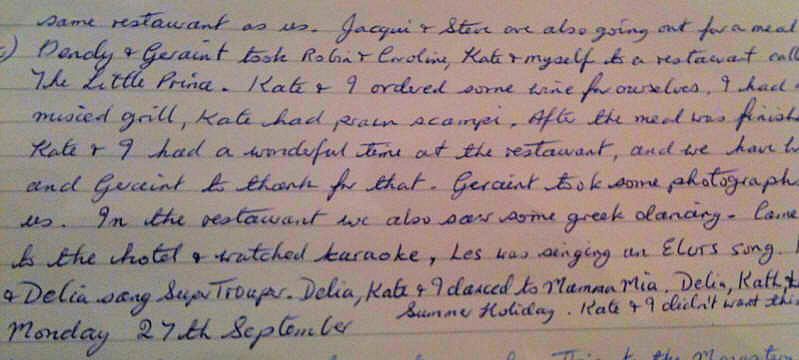 same restaurant as us. Jacqui & Steve are also going out for a meal
Dendy & Geraint took Robin & Caroline, Kate & myself to a restaurant
The Little Prince. Kate & I ordered some wine for ourselves, I had
musied grill, Kate had prawn scampi. After the meal was
Kate & I had a wonderful time at the restaurant, and we have
and Geraint to thank for that. Geraint took some
us. In the restaurant we also saw some greek dancing. Came
to the hotel & watched karaoke, Les was singing an Elvis song.
& Delia sang SuperTrouper. Delia, Kate & I danced to Mamma Mia. Delia, Kath
Summer Holiday. Kate & I didn't want
Monday 27th September